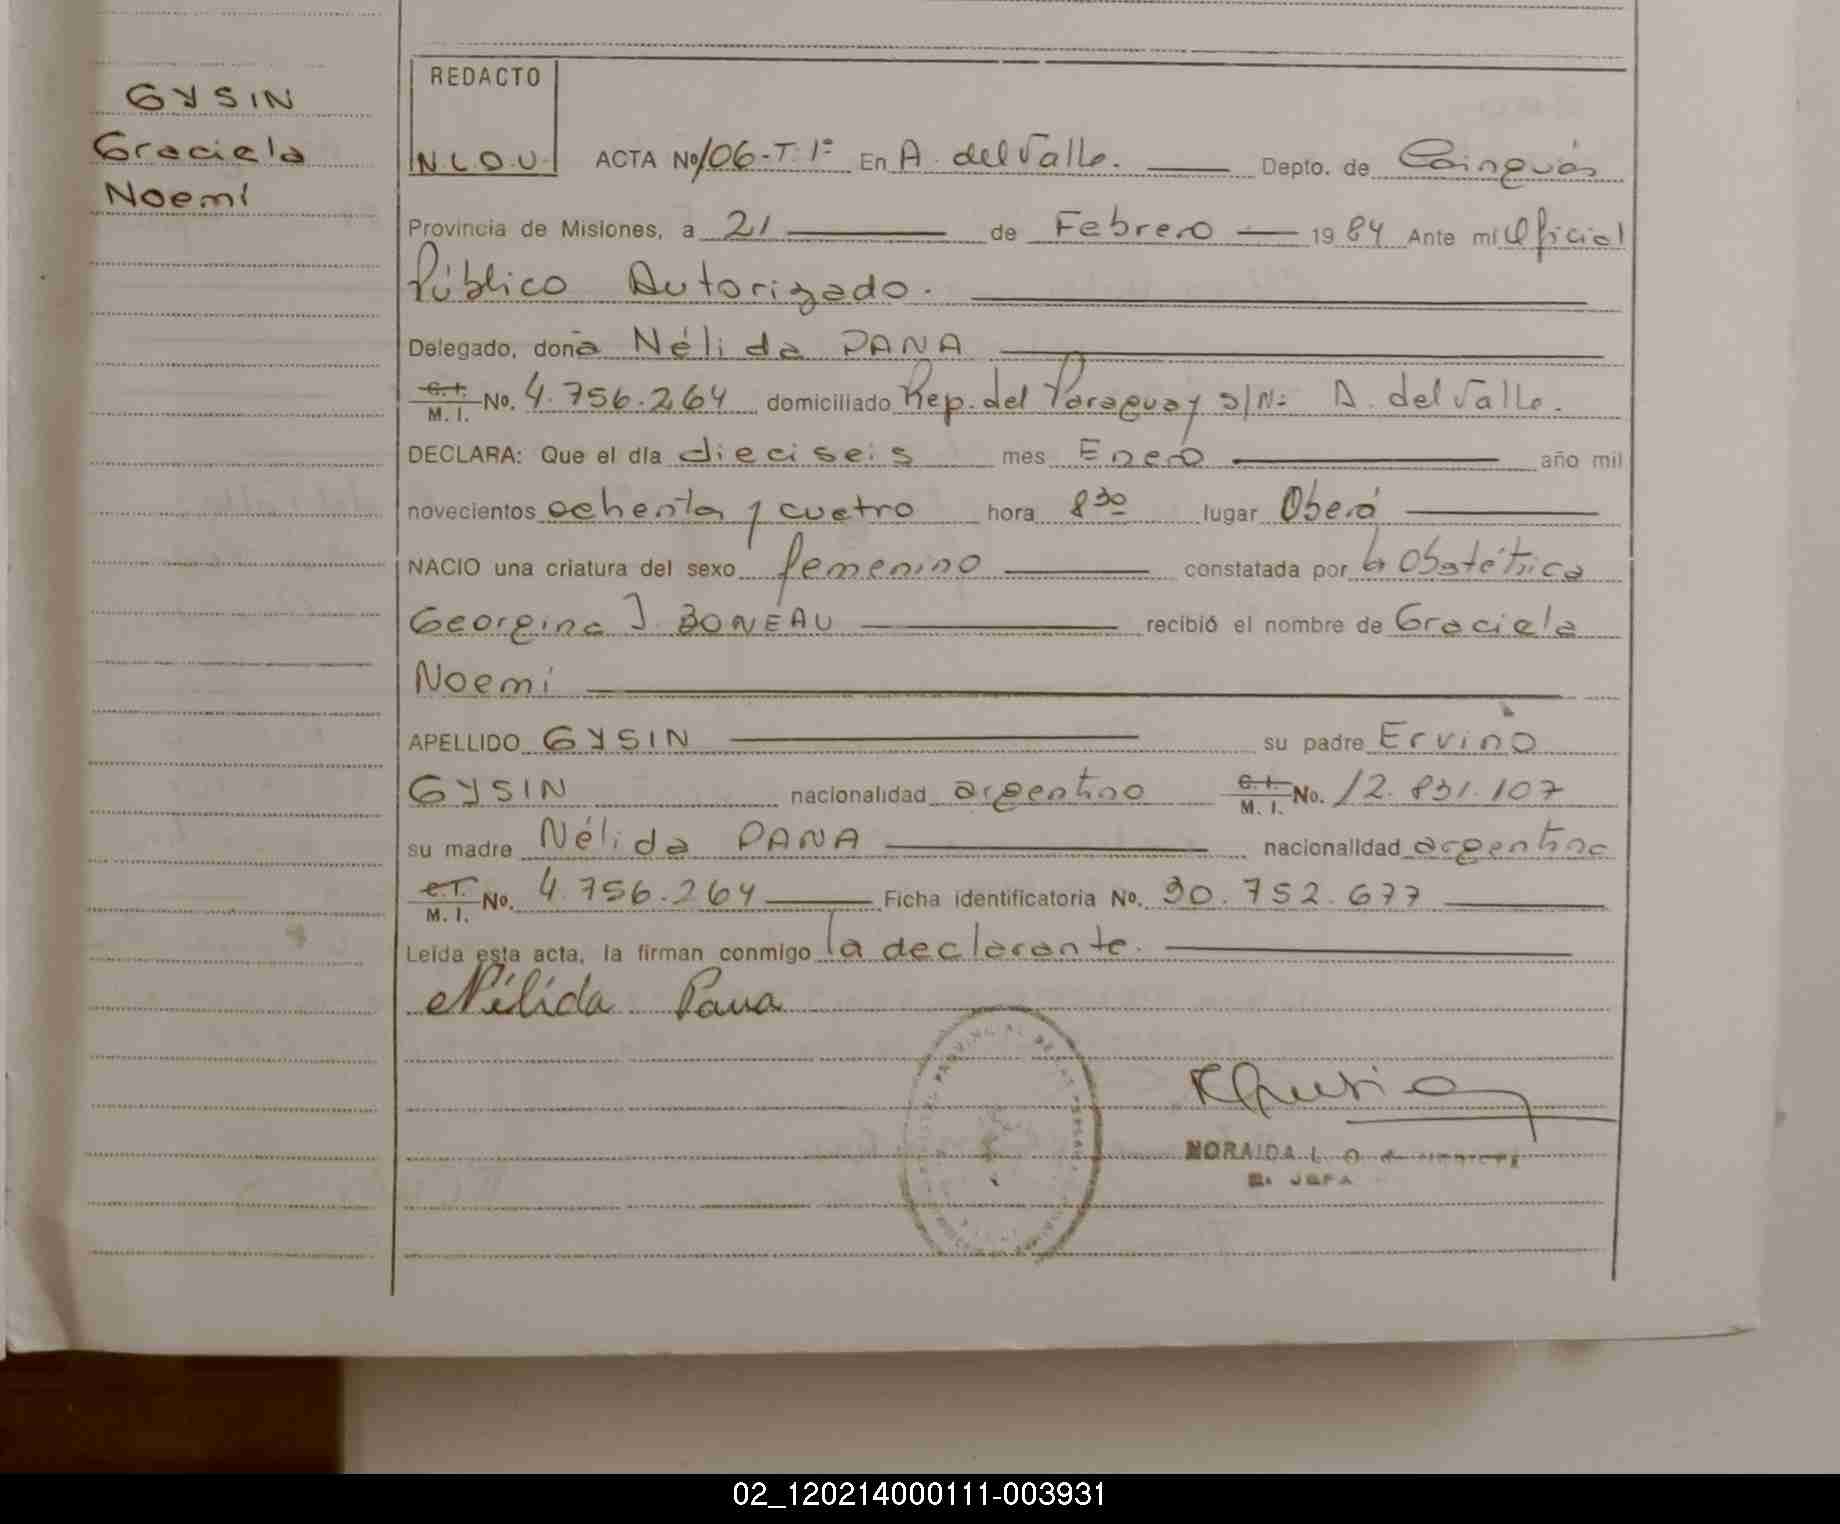 GYSIN
Graciela
Noemí
REDACTO
N.L.O.U.
ACTA Nº 106-T.1º En A. del Valle. Depto. de Cainguás
Provincia de Misiones, a 21 de Febrero 1984 Ante mí Oficial
Público Autorizado.
Delegado, doña Nélida PANA
C.I. M.I. No. 4.756.264 domiciliado Rep. del Paraguay s/Nº A. del Valle.
DECLARA: Que el día dieciseis mes Enero año mil
novecientos ochenta y cuatro hora 8 30 lugar Oberá
NACIO una criatura del sexo femenino constatada por la Obstétrica
Georgina J. BONEAU recibió el nombre de Graciela
Noemí
APELLIDO GYSIN su padre Ervino
GYSIN nacionalidad argentino C.I. M.I. No. 12.831.107
su madre Nélida PANA nacionalidad argentina
C.I. M.I. No. 4.756.264 Ficha identificatoria No. 30.752.677
Leída esta acta, la firman conmigo la declarante.
Nélida Pana
NORAIDA L.
JEFA
02_120214000111-003931